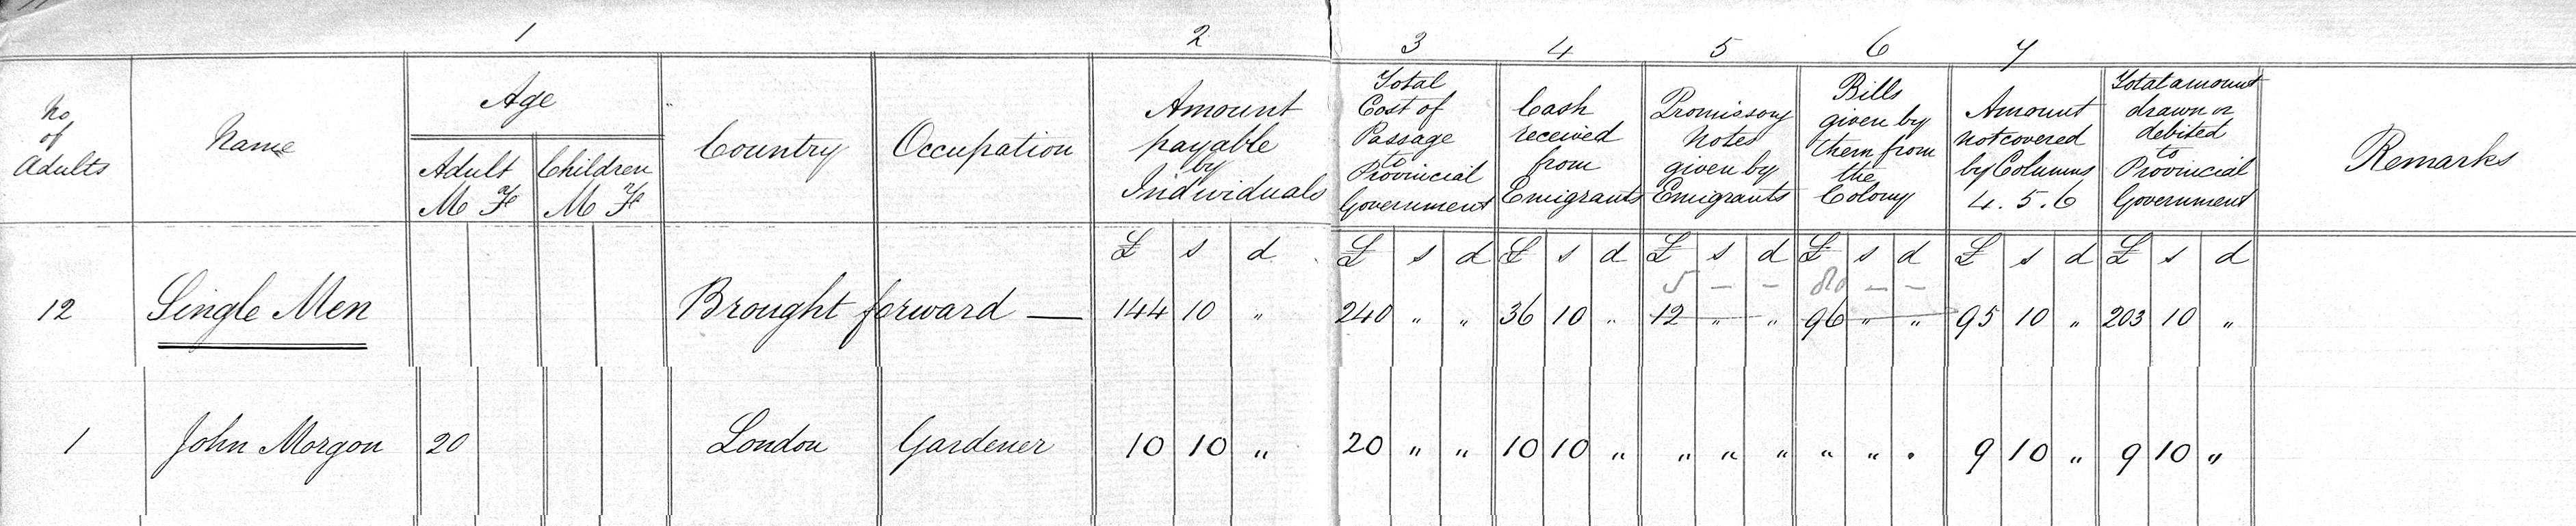 1 2 3 4 5 6 7
No of Adults | Name | Age | Country | Occupation | Amount payable by Individuals | Total Cost of Passage to Provincial Government | Cash received from Emigrants | Promissory Notes given by Emigrants | Bills given by them from the Colony | Amount not covered by Columns 4. 5. 6 | Total amount drawn or debited to Provincial Government | Remarks
Adult M Fe | Children M Fe
£ s d | £ s d | £ s d | £ s d | £ s d | £ s d | £ s d
5 – – | 80 – –
12 | Single Men | Brought forward — | 144 10 " | 240 " " | 36 10 " | 12 " " | 96 " " | 95 10 " | 203 10 "
1 | John Morgon | 20 | London | Gardener | 10 10 " | 20 " " | 10 10 " | " " " | " " " | 9 10 " | 9 10 "